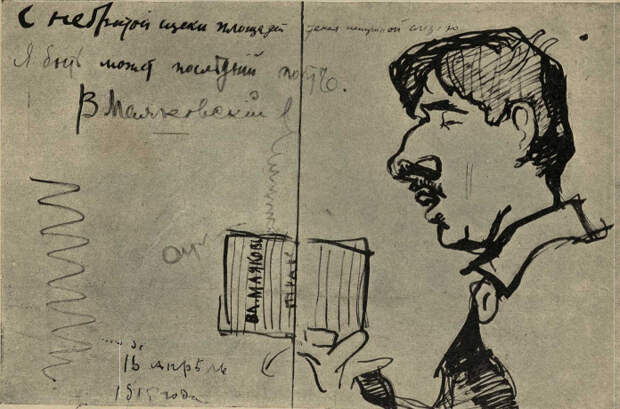 С небритой щеки площадей стекая ненужной слезою
Я быть может последний поэтъ.
В Маяковскій
ВЛ. МАЯКОВ
апрѣль
1915 года